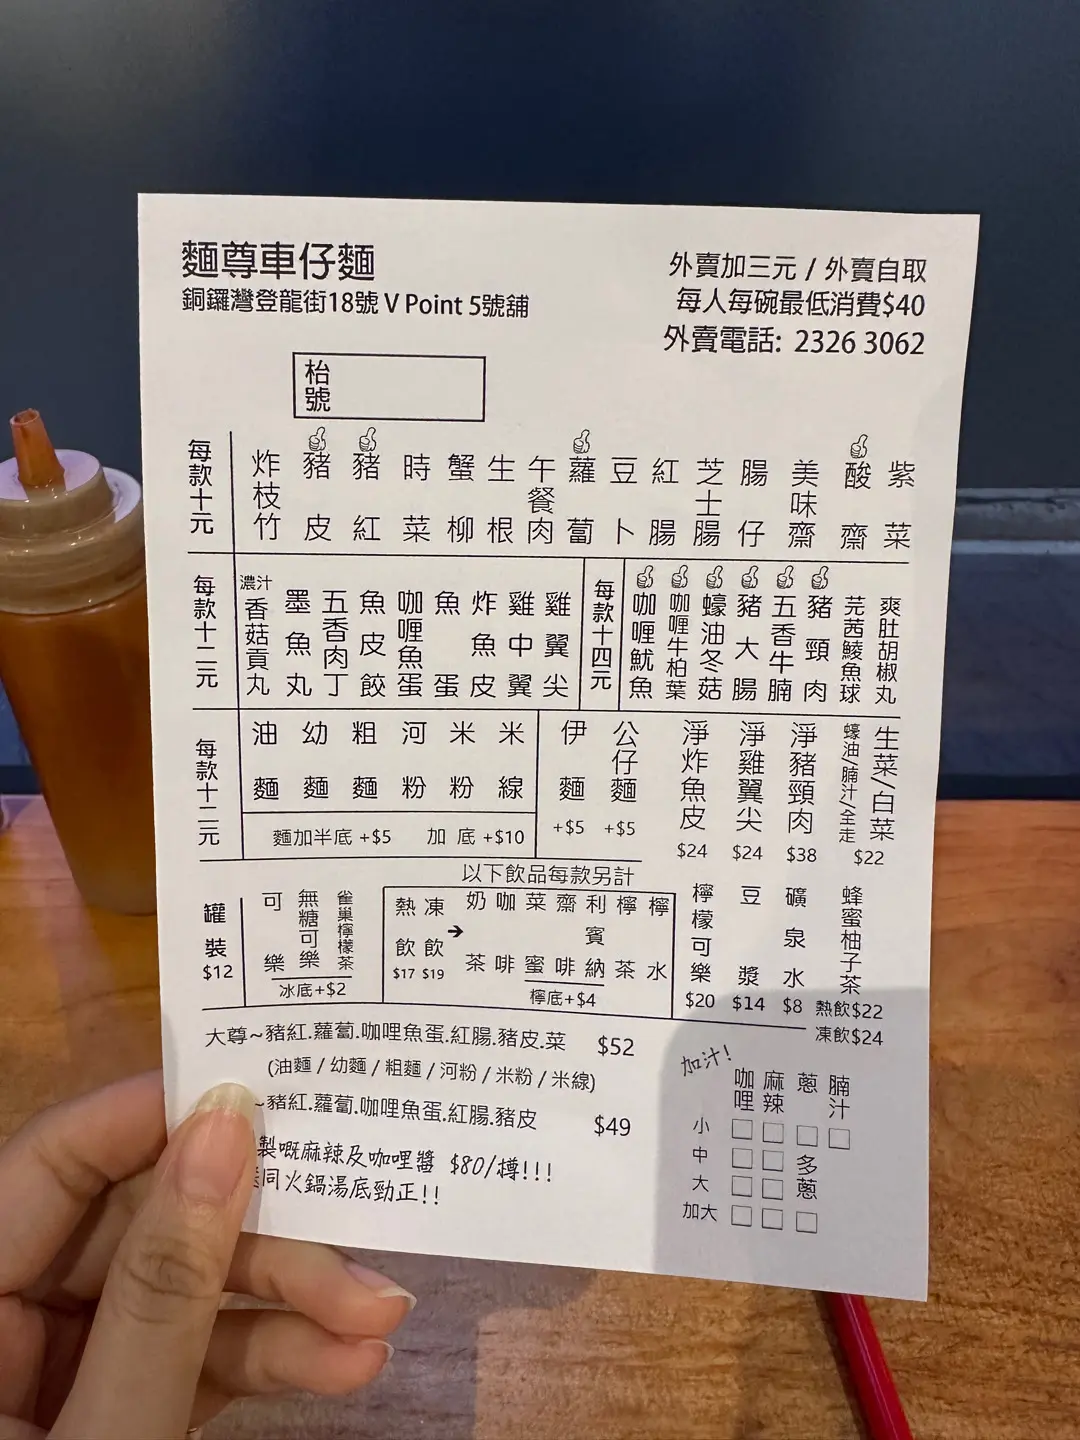 麵尊車仔麵
銅鑼灣登龍街18號 V Point 5號舖
外賣加三元 / 外賣自取
每人每碗最低消費$40
外賣電話: 2326 3062
枱號
每款十元
炸枝竹
豬皮
豬紅
時菜
蟹柳
生根
午餐肉
蘿蔔
豆卜
紅腸
芝士腸
腸仔
美味齋
酸齋
紫菜
每款十二元
濃汁香菇貢丸
墨魚丸
五香肉丁
魚皮餃
咖喱魚蛋
魚蛋
炸魚皮
雞中翼
雞翼尖
每款十四元
咖喱魷魚
咖喱牛柏葉
蠔油冬菇
豬大腸
五香牛腩
豬頸肉
芫茜鯪魚球
爽肚胡椒丸
每款十二元
油麵
幼麵
粗麵
河粉
米粉
米線
麵加半底 +$5 加 底 +$10
伊麵 +$5
公仔麵 +$5
淨炸魚皮 $24
淨雞翼尖 $24
淨豬頸肉 $38
生菜/白菜 蠔油/腩汁/全走 $22
以下飲品每款另計
罐裝 $12
可樂
無糖可樂
雀巢檸檬茶
冰底+$2
熱飲 $17
凍飲 $19
➔
奶茶
咖啡
菜蜜
齋啡
利賓納
檸茶
檸水
檸底+$4
檸檬可樂 $20
豆漿 $14
礦泉水 $8
蜂蜜柚子茶
熱飲$22
凍飲$24
大尊~豬紅.蘿蔔.咖哩魚蛋.紅腸.豬皮.菜 $52
(油麵 / 幼麵 / 粗麵 / 河粉 / 米粉 / 米線)
~豬紅.蘿蔔.咖哩魚蛋.紅腸.豬皮 $49
製嘅麻辣及咖哩醬 $80/樽!!!
同火鍋湯底勁正!!
加汁!
咖哩 麻辣 蔥 腩汁
小 □ □ □ □
中 □ □ 多蔥
大 □ □
加大 □ □ □